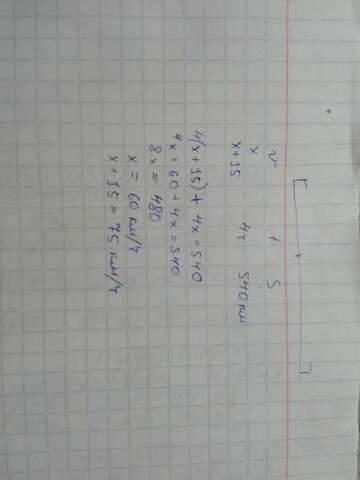 v t S
x
x+15 4ч 540км
4(x+15)+4x=540
4x+60+4x=540
8x=480
x=60км/ч
x+15=75км/ч